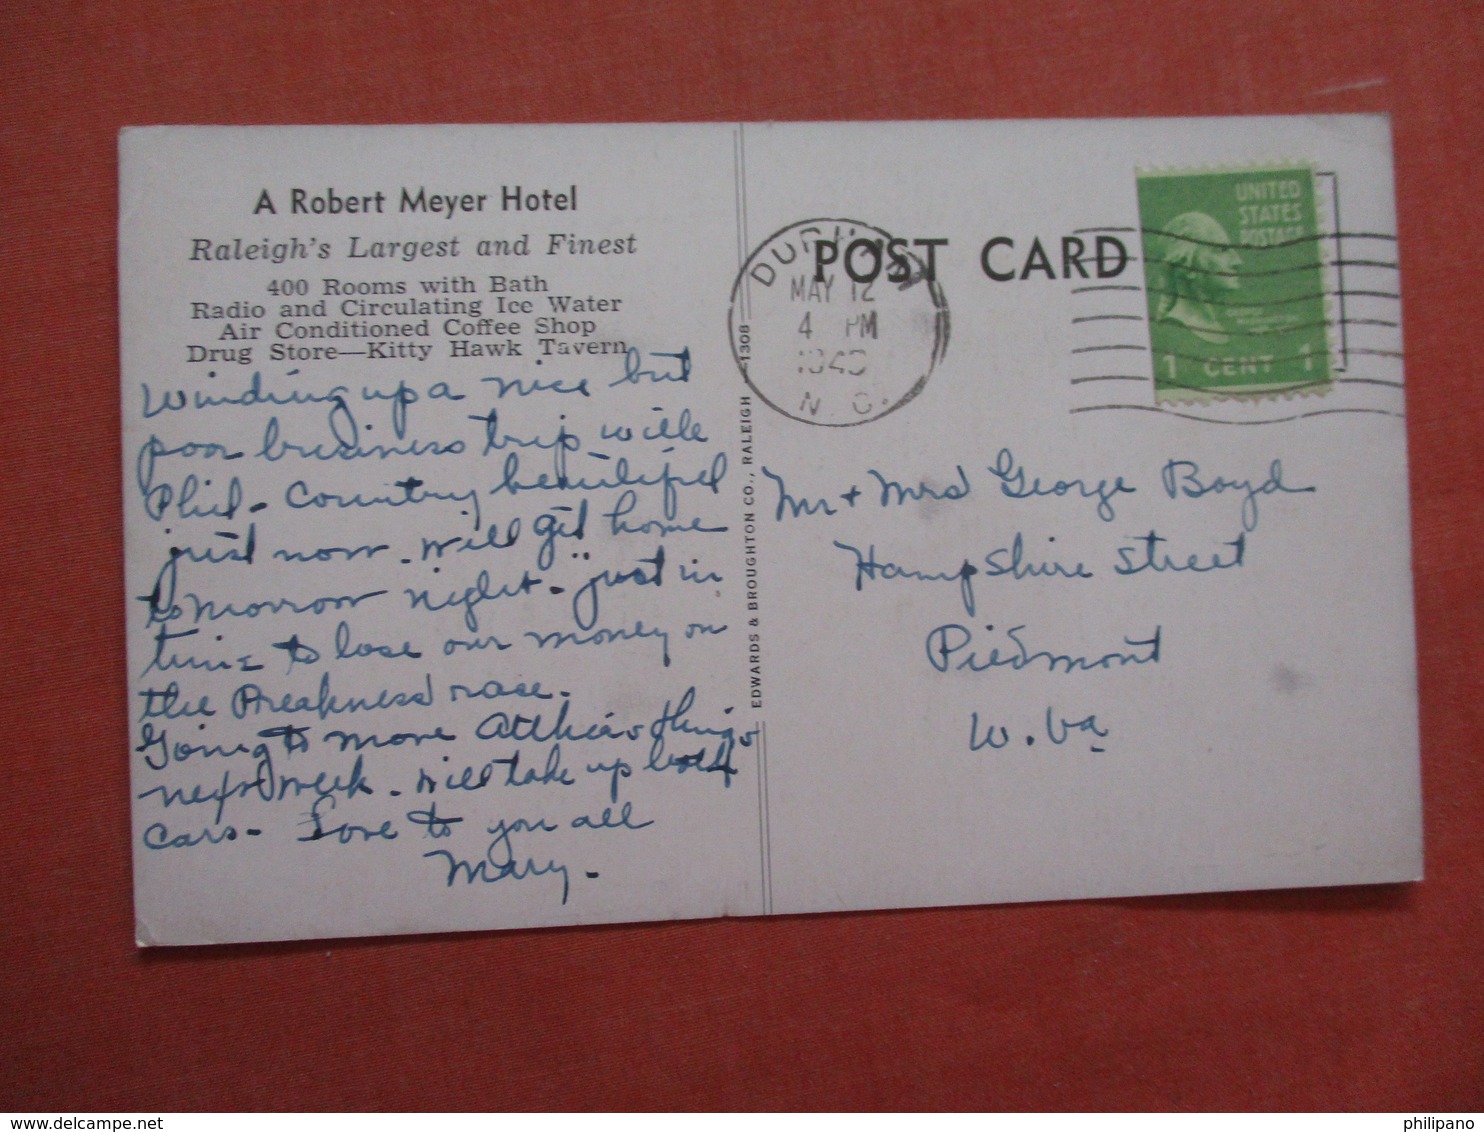 A Robert Meyer Hotel
Raleigh's Largest and Finest
400 Rooms with Bath
Radio and Circulating Ice Water
Air Conditioned Coffee Shop
Drug Store—Kitty Hawk Tavern
Winding up a nice but
poor business trip with
Phil - Country beautiful
just now - will get home
tomorrow night - just in
time to lose our money on
the Preakness race.
Going to more things
next week - will take up both
cars - Love to you all
Mary -
EDWARDS & BROUGHTON CO., RALEIGH -1308
POST CARD
DURHAM
MAY 12
4 PM
N. C.
UNITED
STATES
POSTAGE
1 CENT 1
Mr + Mrs George Boyd
Hampshire Street
Piedmont
W. Va
philipano